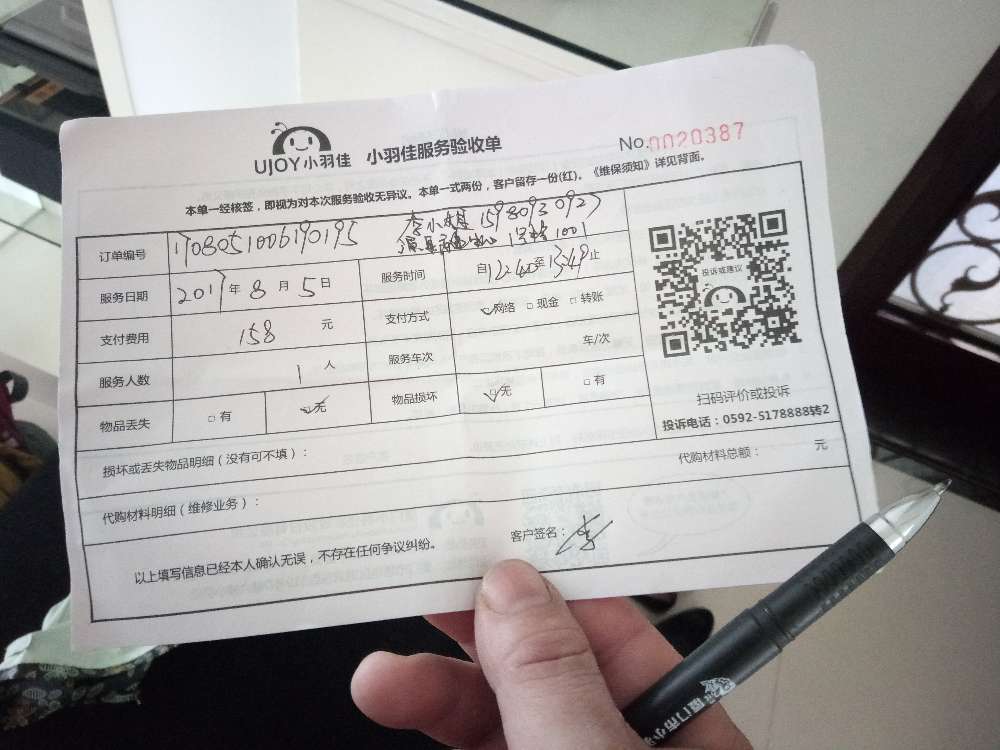 UJOY小羽佳 小羽佳服务验收单 No.0020387
本单一经核签，即视为对本次服务验收无异议。本单一式两份，客户留存一份(红)。《维保须知》详见背面。
订单编号 1708051006190195 李小 1598093092
1号楼1001
服务日期 2017年8月5日 服务时间 自12:40至13:49止
支付费用 158 元 支付方式 网络 □现金 □转账
服务人数 1 人 服务车次 车/次
物品丢失 □有 无 物品损坏 无 □有
投诉或建议
扫码评价或投诉
投诉电话：0592-5178888转2
损坏或丢失物品明细（没有可不填）：
代购材料明细（维修业务）： 代购材料总额： 元
以上填写信息已经本人确认无误，不存在任何争议纠纷。 客户签名： 李
厦门市小